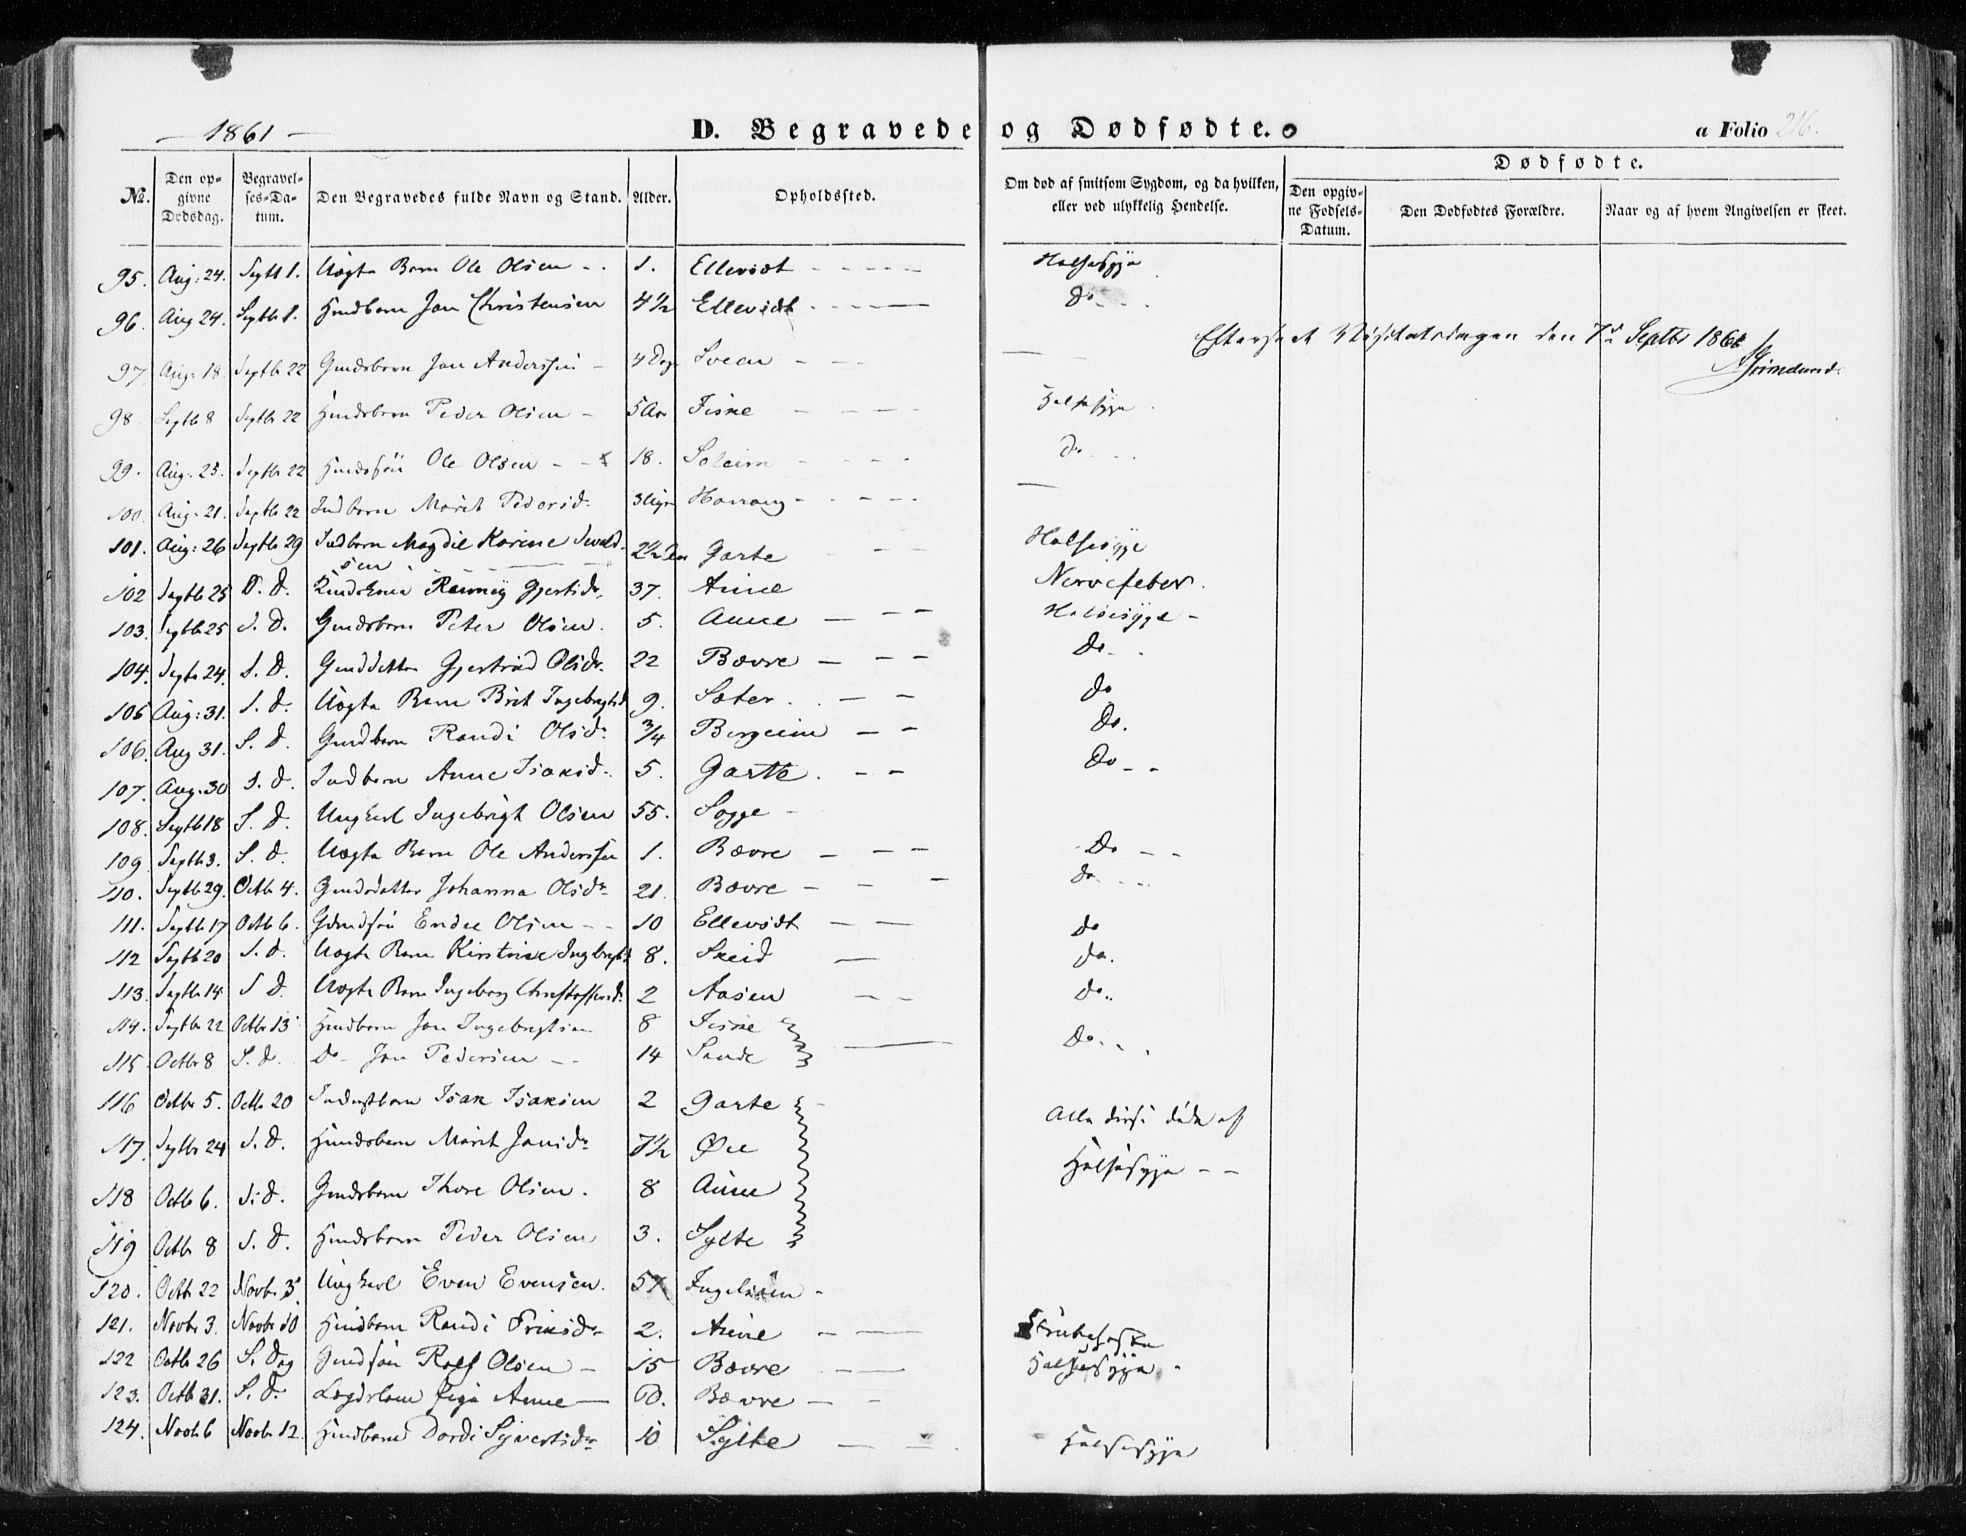 1861
D. Begravede og Dødfødte.
a Folio 216.
Dødfødte.
No. Den opgivne Dødsdag. Begravelses-Datum. Den Begravedes fulde Navn og Stand. Alder. Opholdssted. Om død af smitsom Sygdom, og da hvilken, eller ved ulykkelig Hendelse. Den opgivne Fødsels-Datum. Den Dødfødtes Forældre. Naar og af hvem Angivelsen er skeet.
95. Aug: 24. Septb 1. Uægte Barn Ole Olsen 1. Ellevidt Halsesyge
96. Aug 24. Septb 1. Husdbarn Jon Christensen 4 1/2 Ellevidt Do
den 7de Septbr 186
Grimelund
97 Aug: 18. Septb 22 Gmdsbarn Jon Anderssen 4 Dage Sveen
98 Septb 8 Septb 22 Husdsbarn Peder Olsen 5 Aar Fiske Halsesyge
99. Aug. 23. Septb 22 Ole Olsen 18. Soleim Do
100. Aug. 21. Septb 22 Indbarn Marit Pedersd. 3 Uger Harang
101. Aug: 26 Septb 29 Indbarn Magdil Karine Sevaldsen 2 1/2 Aar Garte Halsesyge
102 Septb 25 S. D. Gjertsdr. 37. Aune Nervefeber.
103. Septb 25 S. D. Gmdsbarn Peter Olsen. 5. Aune Halsesyge
104. Septb 24. S. D. Gmddatter Gjertrud Olsdr. 22 Bævre Do
105 Aug: 31. S. D. Uægte Barn Brit Ingebrigtsd 9. Sæter Do
106. Aug 31. S. D. Gmdbarn Randi Olsdr. 3/4 Bergeim Do.
107. Aug. 30 S. D. Indbarn Anne Isaksd. 5. Garte Do
108. Septb 18 S. D. Ungkarl Ingebrigt Olsen 55. Sogge
109 Septb 3. S. D. Uægte Barn Ole Anderssen 1. Bævre Do
110. Septb 29. Octb 4. Gmdsdatter Johanna Olsdr. 21. Bævre Do
111. Septb 17 Octb 6. Gmdsøn Endre Olsen 10 Ellevidt Do
112 Septb 20 S. D. Uægte Barn Kirstine Ingebrigtsd 8. Skeid Do.
113. Septb 14 S D. Uægte Barn Ingeborg Christoffersd. 2 Aasen Do
114. Septb 22 Octbr 13 Husdbarn Jon Ingebrigtsen 8 Fiske
115 Octbr 8 S. D. Do Jon Pedersen 14 Sande Do
116 Octbr 5. Octb 20 Indrstbarn Isak Isaksen 2 Garte Alle disse døde af
117. Septbr 24 S. D. Husdsbarn Marit Jonsdr 7 1/2 Øie Halsesyge
118 Octb 6. S. D. Gmdsbarn Thore Olsen. 8 Aune
119 Octbr 8 S. D. Husdsbarn Peder Olsen 3. Sylte
120. Octb 22 Novbr 3 Ungkarl Even Evensen. 57
121. Novbr 3. Novbr 10 Husdbarn Randi 2. Aune Strubehoste
122 Octb 26 S. Dag Gmdsøn Rolf Olsen 15 Bævre Halsesyge
123. Octb 31. S. D. Anne 60. Bævre
124. Novb 6 Novbr 12. Husdbarn Dordi Syvertsdr 10 Sylte Halsesyge